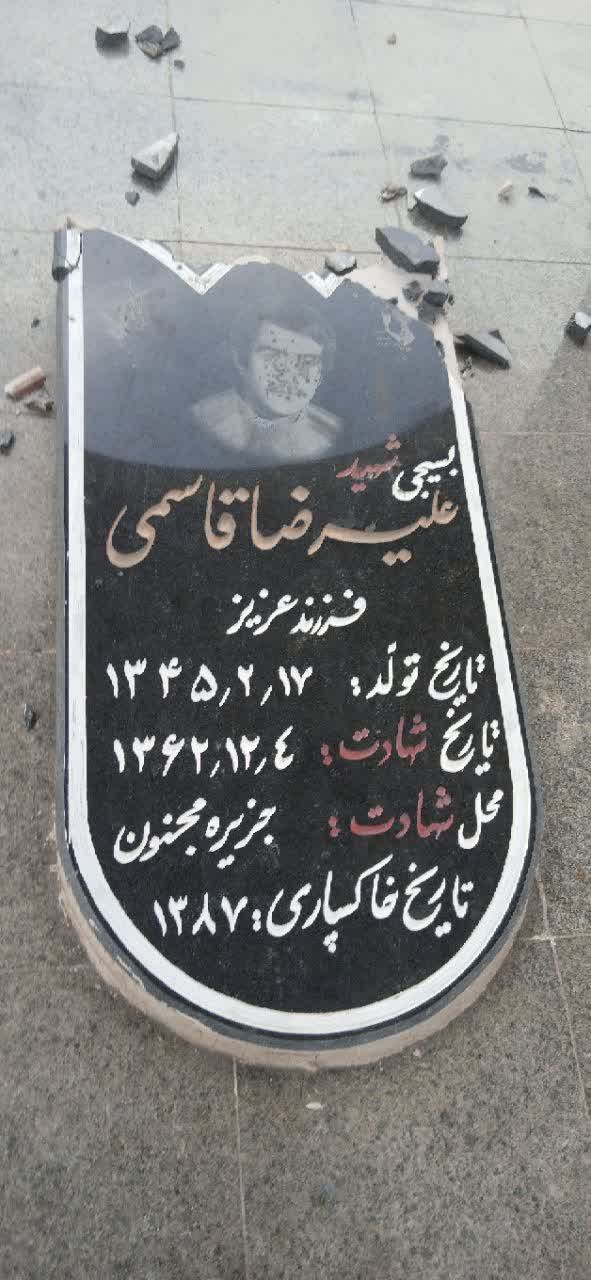 بسیجی شهید
علیرضا قاسمی
فرزند عزیز
تاریخ تولّد: ۱۳۴۵٫۲٫۱۷
تاریخ شهادت: ۱۳۶۲٫۱۲٫٤
محل شهادت: جزیره مجنون
تاریخ خاکسپاری: ۱۳۸۷